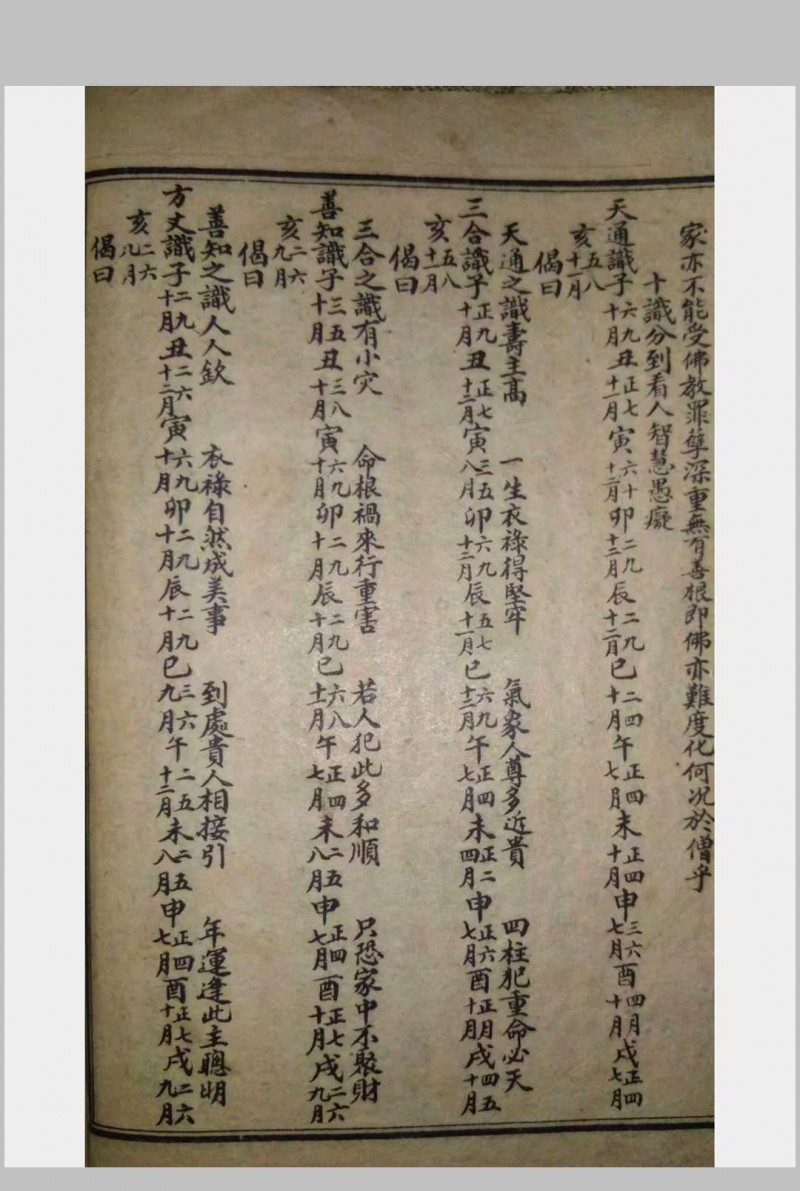 家亦不能受佛教罪孽深重無有善根即佛亦難度化何況於僧乎
十識分到看人智慧愚癡
天通識子六九十月丑正七十一月寅六十十二月卯二九十二月辰二九十二月巳二四十月午正四七月未正四十月申三六七月酉四月十月戌正四七月
亥五八十一月
偈曰
天通之識壽主高 一生衣祿得堅牢 氣象人尊多近貴 四柱犯重命必夭
三合識子正九十月丑正七十二月寅三五八月卯六九十二月辰五七十一月巳六九十二月午正四七月未正二四月申正六七月酉正月十月戌四五十月
亥五八十一月
偈曰
三合之識有小灾 命根禍來行重害 若人犯此多和順 只恐家中不聚財
善知識子三五十月丑三八十一月寅六九十月卯二九十月辰二九十月巳六八十一月午正四七月未二五八月申正四七月酉正七十月戌二六九月
亥二六九月
偈曰
善知之識人人欽 衣祿自然成美事 到處貴人相接引 年運逢此主聰明
方丈識子二九十月丑二六十二月寅六九十月卯二九十月辰二九十月巳三六九月午二五十二月未二五八月申正四七月酉正七十月戌二六九月
亥二六八月
偈曰